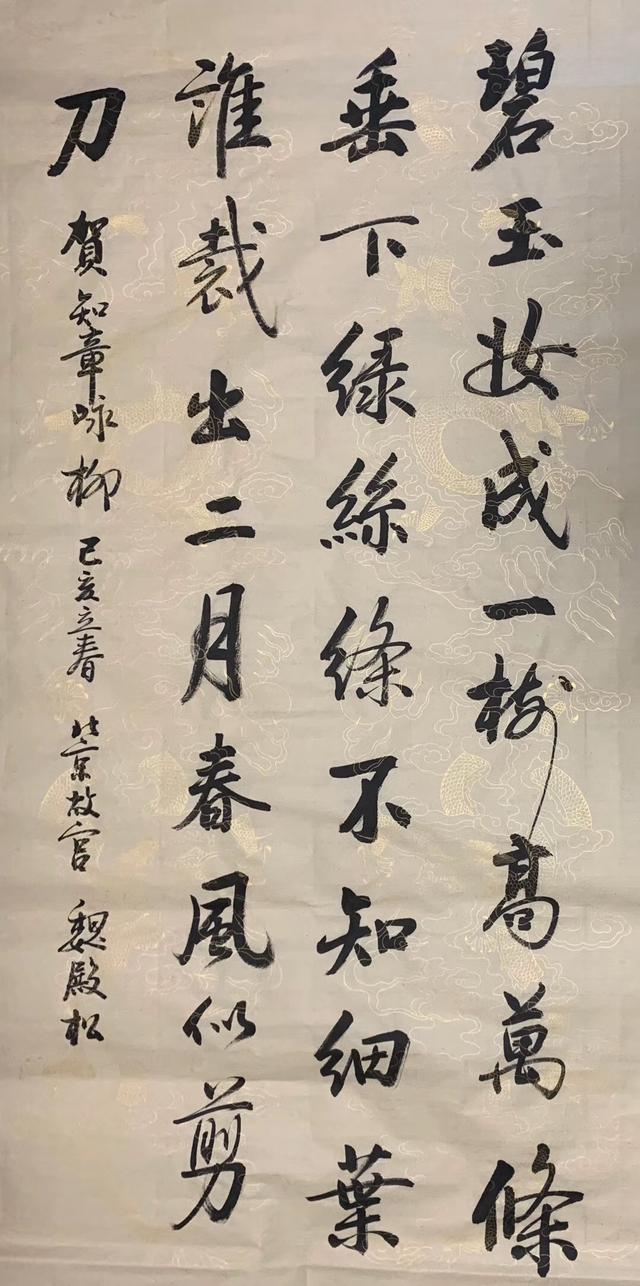 碧玉妝成一樹高萬條
垂下綠絲絛不知細葉
誰裁出二月春風似剪
刀 賀知章咏柳 己亥立春 北京故宫 魏殿松